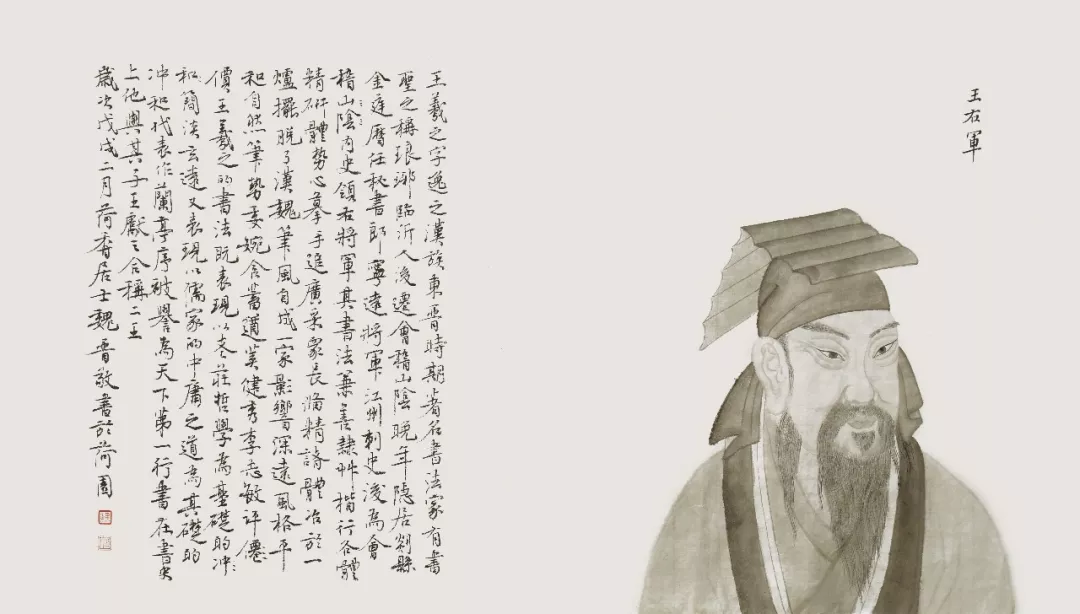 王右軍
王羲之字逸之漢族東晋時期著名書法家有書
聖之稱琅琊臨沂人後遷會稽山陰晚年隱居剡縣
金庭曆任秘書郎寧遠將軍江州刺史後為會
稽山陰内史領右將軍其書法兼善隸艸楷行各體
精研體勢心摹手追廣采衆長備精諸體冶於一
爐擺脱了漢魏筆風自成一家影響深遠風格平
和自然筆勢委婉含蓄遒美健秀李志敏評僊
價王羲之的書法既表現以老莊哲學為基礎的冲
和簡淡玄遠又表現以儒家的中庸之道為其礎的
冲和代表作蘭亭序被譽為天下第一行書在書史
上他與其子王獻之合稱二王
歲次戊戌二月荷香居士魏晋敬書於荷園